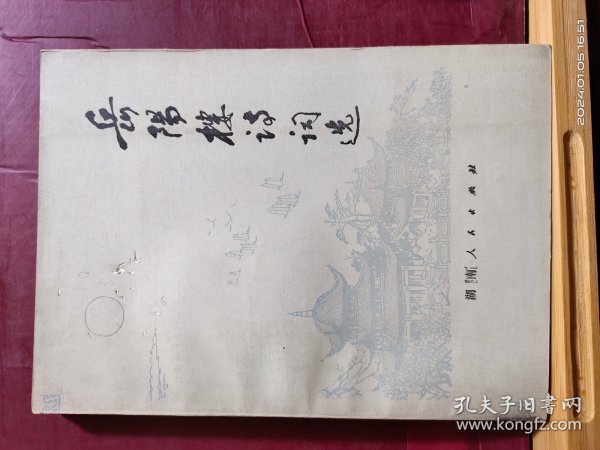 岳阳楼诗词选
湖南人民出版社
2024.01.05 16:51
孔夫子旧书网
www.kongfz.com